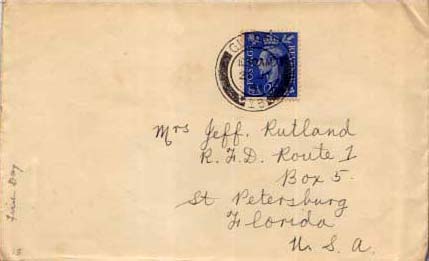 POSTAGE
REVENUE
Mrs Jeff. Rutland
R.F.D. Route 1
Box 5.
St Petersburg
Florida
U.S.A.